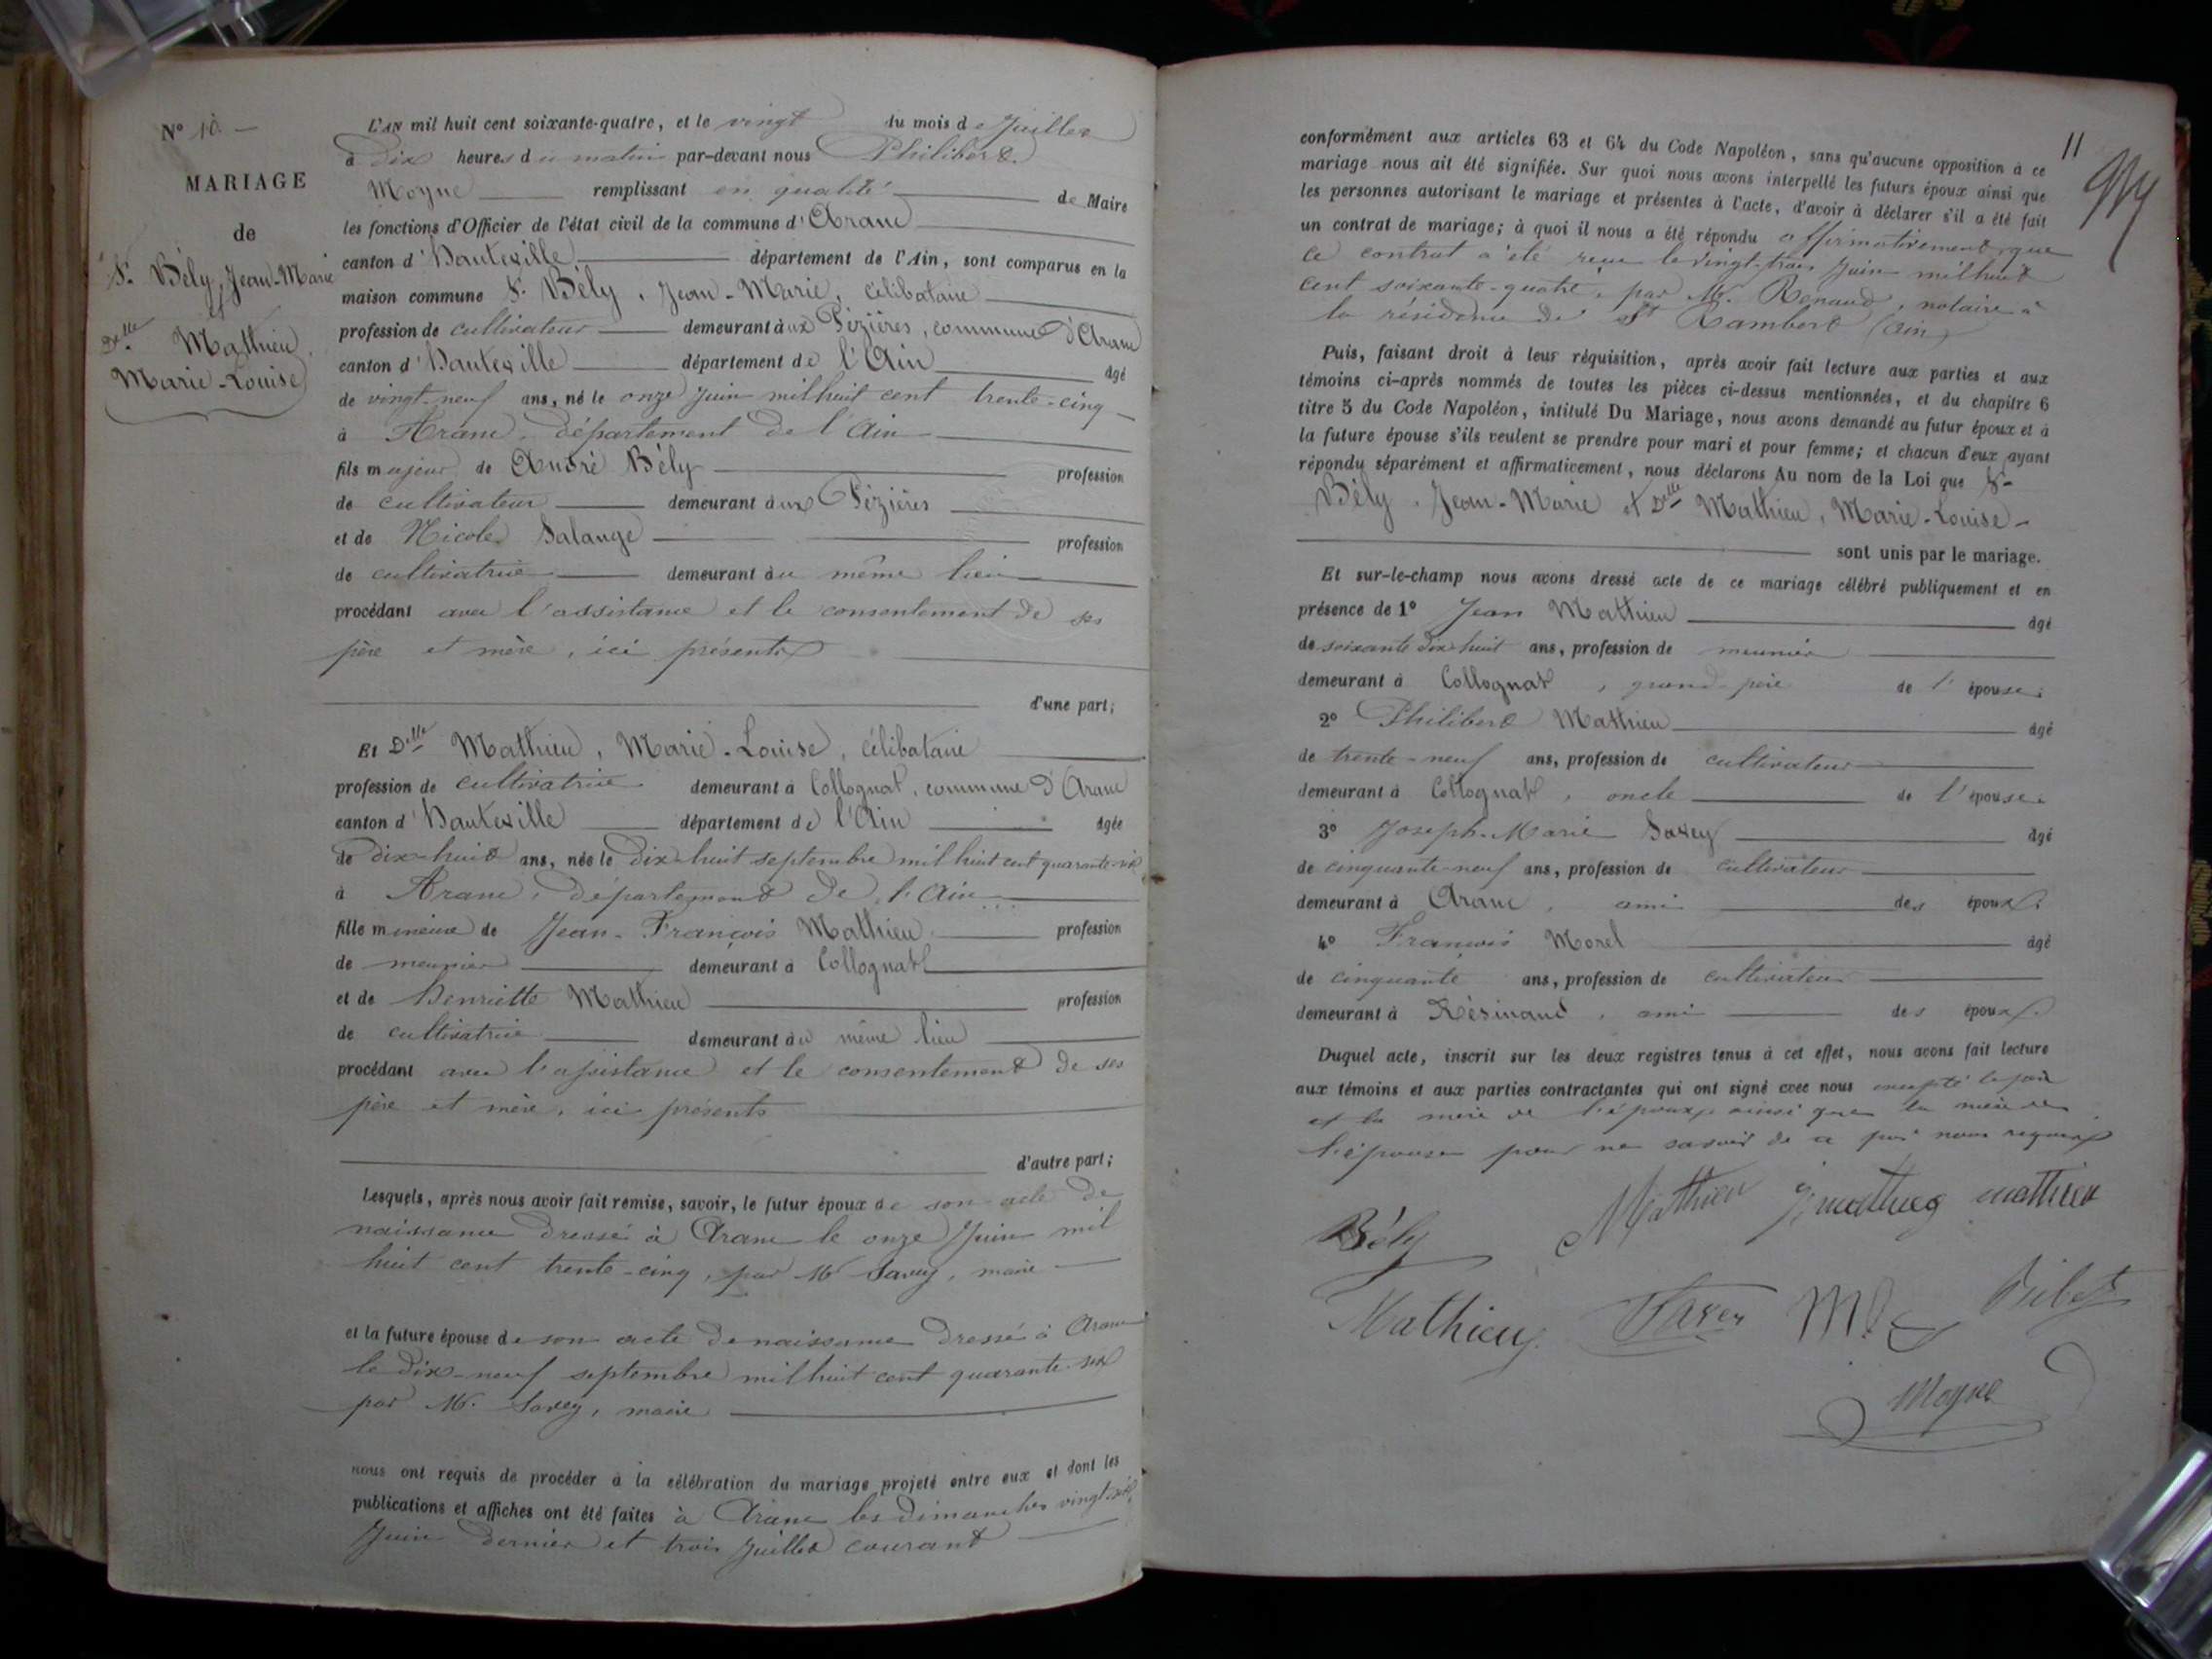 N° 10 —
MARIAGE
de
Sr. Bély, Jean-Marie
et
Delle Mathieu
Marie-Louise
L'AN mil huit cent soixante-quatre, et le vingt du mois de Juillet
à dix heures du matin par-devant nous Philibert
Moyne remplissant en qualité de Maire
les fonctions d'Officier de l'état civil de la commune d'Aranc
canton d'Hauteville département de l'Ain, sont comparus en la
maison commune Sr. Bély, Jean-Marie, célibataire
profession de cultivateur demeurant aux Pézières, commune d'Aranc
canton d'Hauteville département de l'Ain âgé
de vingt-neuf ans, né le onze Juin mil huit cent trente-cinq
à Aranc, département de l'Ain
fils majeur de André Bély profession
de cultivateur demeurant aux Pézières
et de Nicole Salange profession
de cultivatrice demeurant au même lieu
procédant avec l'assistance et le consentement de ses
père et mère, ici présents
d'une part;
Et Delle Mathieu, Marie-Louise, célibataire
profession de cultivatrice demeurant à Collognat, commune d'Aranc
canton d'Hauteville département de l'Ain âgée
de dix-huit ans, née le dix-huit septembre mil huit cent quarante-six
à Aranc, département de l'Ain
fille mineure de Jean-François Mathieu profession
de meunier demeurant à Collognat
et de Henriette Mathieu profession
de cultivatrice demeurant au même lieu
procédant avec l'assistance et le consentement de ses
père et mère, ici présents
d'autre part;
Lesquels, après nous avoir fait remise, savoir, le futur époux de son acte de
naissance dressé à Aranc le onze Juin mil
huit cent trente-cinq, par M. Savey, maire
et la future épouse de son acte de naissance dressé à Aranc
le dix-neuf septembre mil huit cent quarante-six
par M. Savey, maire
nous ont requis de procéder à la célébration du mariage projeté entre eux et dont les
publications et affiches ont été faites à Aranc les dimanches vingt-six
Juin dernier et trois Juillet courant
11
conformément aux articles 63 et 64 du Code Napoléon, sans qu'aucune opposition à ce
mariage nous ait été signifiée. Sur quoi nous avons interpellé les futurs époux ainsi que
les personnes autorisant le mariage et présentes à l'acte, d'avoir à déclarer s'il a été fait
un contrat de mariage; à quoi il nous a été répondu affirmativement, que
ce contrat a été reçu le vingt-trois Juin mil huit
cent soixante-quatre, par M. Renaud, notaire à
la résidence de St Rambert (Ain)
Puis, faisant droit à leur réquisition, après avoir fait lecture aux parties et aux
témoins ci-après nommés de toutes les pièces ci-dessus mentionnées, et du chapitre 6
titre 5 du Code Napoléon, intitulé Du Mariage, nous avons demandé au futur époux et à
la future épouse s'ils veulent se prendre pour mari et pour femme; et chacun d'eux ayant
répondu séparément et affirmativement, nous déclarons Au nom de la Loi que Sr
Bély, Jean-Marie et Delle Mathieu, Marie-Louise
sont unis par le mariage.
Et sur-le-champ nous avons dressé acte de ce mariage célébré publiquement et en
présence de 1° Jean Mathieu âgé
de soixante dix-huit ans, profession de meunier
demeurant à Collognat, grand-père de l'épouse.
2° Philibert Mathieu âgé
de trente-neuf ans, profession de cultivateur
demeurant à Collognat, oncle de l'épouse.
3° Joseph-Marie Savey âgé
de cinquante-neuf ans, profession de cultivateur
demeurant à Aranc, ami des époux.
4° François Morel âgé
de cinquante ans, profession de cultivateur
demeurant à Résinand, ami des époux.
Duquel acte, inscrit sur les deux registres tenus à cet effet, nous avons fait lecture
aux témoins et aux parties contractantes qui ont signé avec nous excepté le père
et la mère de l'époux, ainsi que la mère de
l'épouse pour ne savoir de ce par nous requis
Bély Mathieu mathieu
Mathieu Savey
Moyne